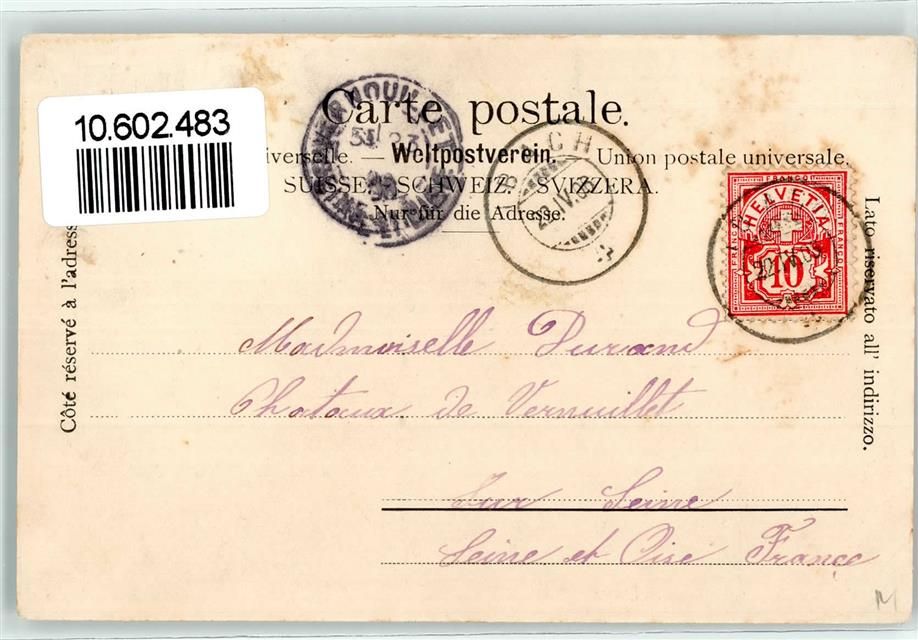 Carte postale.
10.602.483
iverselle. — Weltpostverein. — Union postale universale.
SUISSE. SCHWEIZ. SVIZZERA.
Nur für die Adresse.
FRANCO
HELVETIA
10
FRANCO
FRANCO
Côté réservé à l'adresse
Lato riservato all' indirizzo.
Madmoiselle Durand
Chataux de Vernuillet
Sur Seine
Seine et Oise France
M